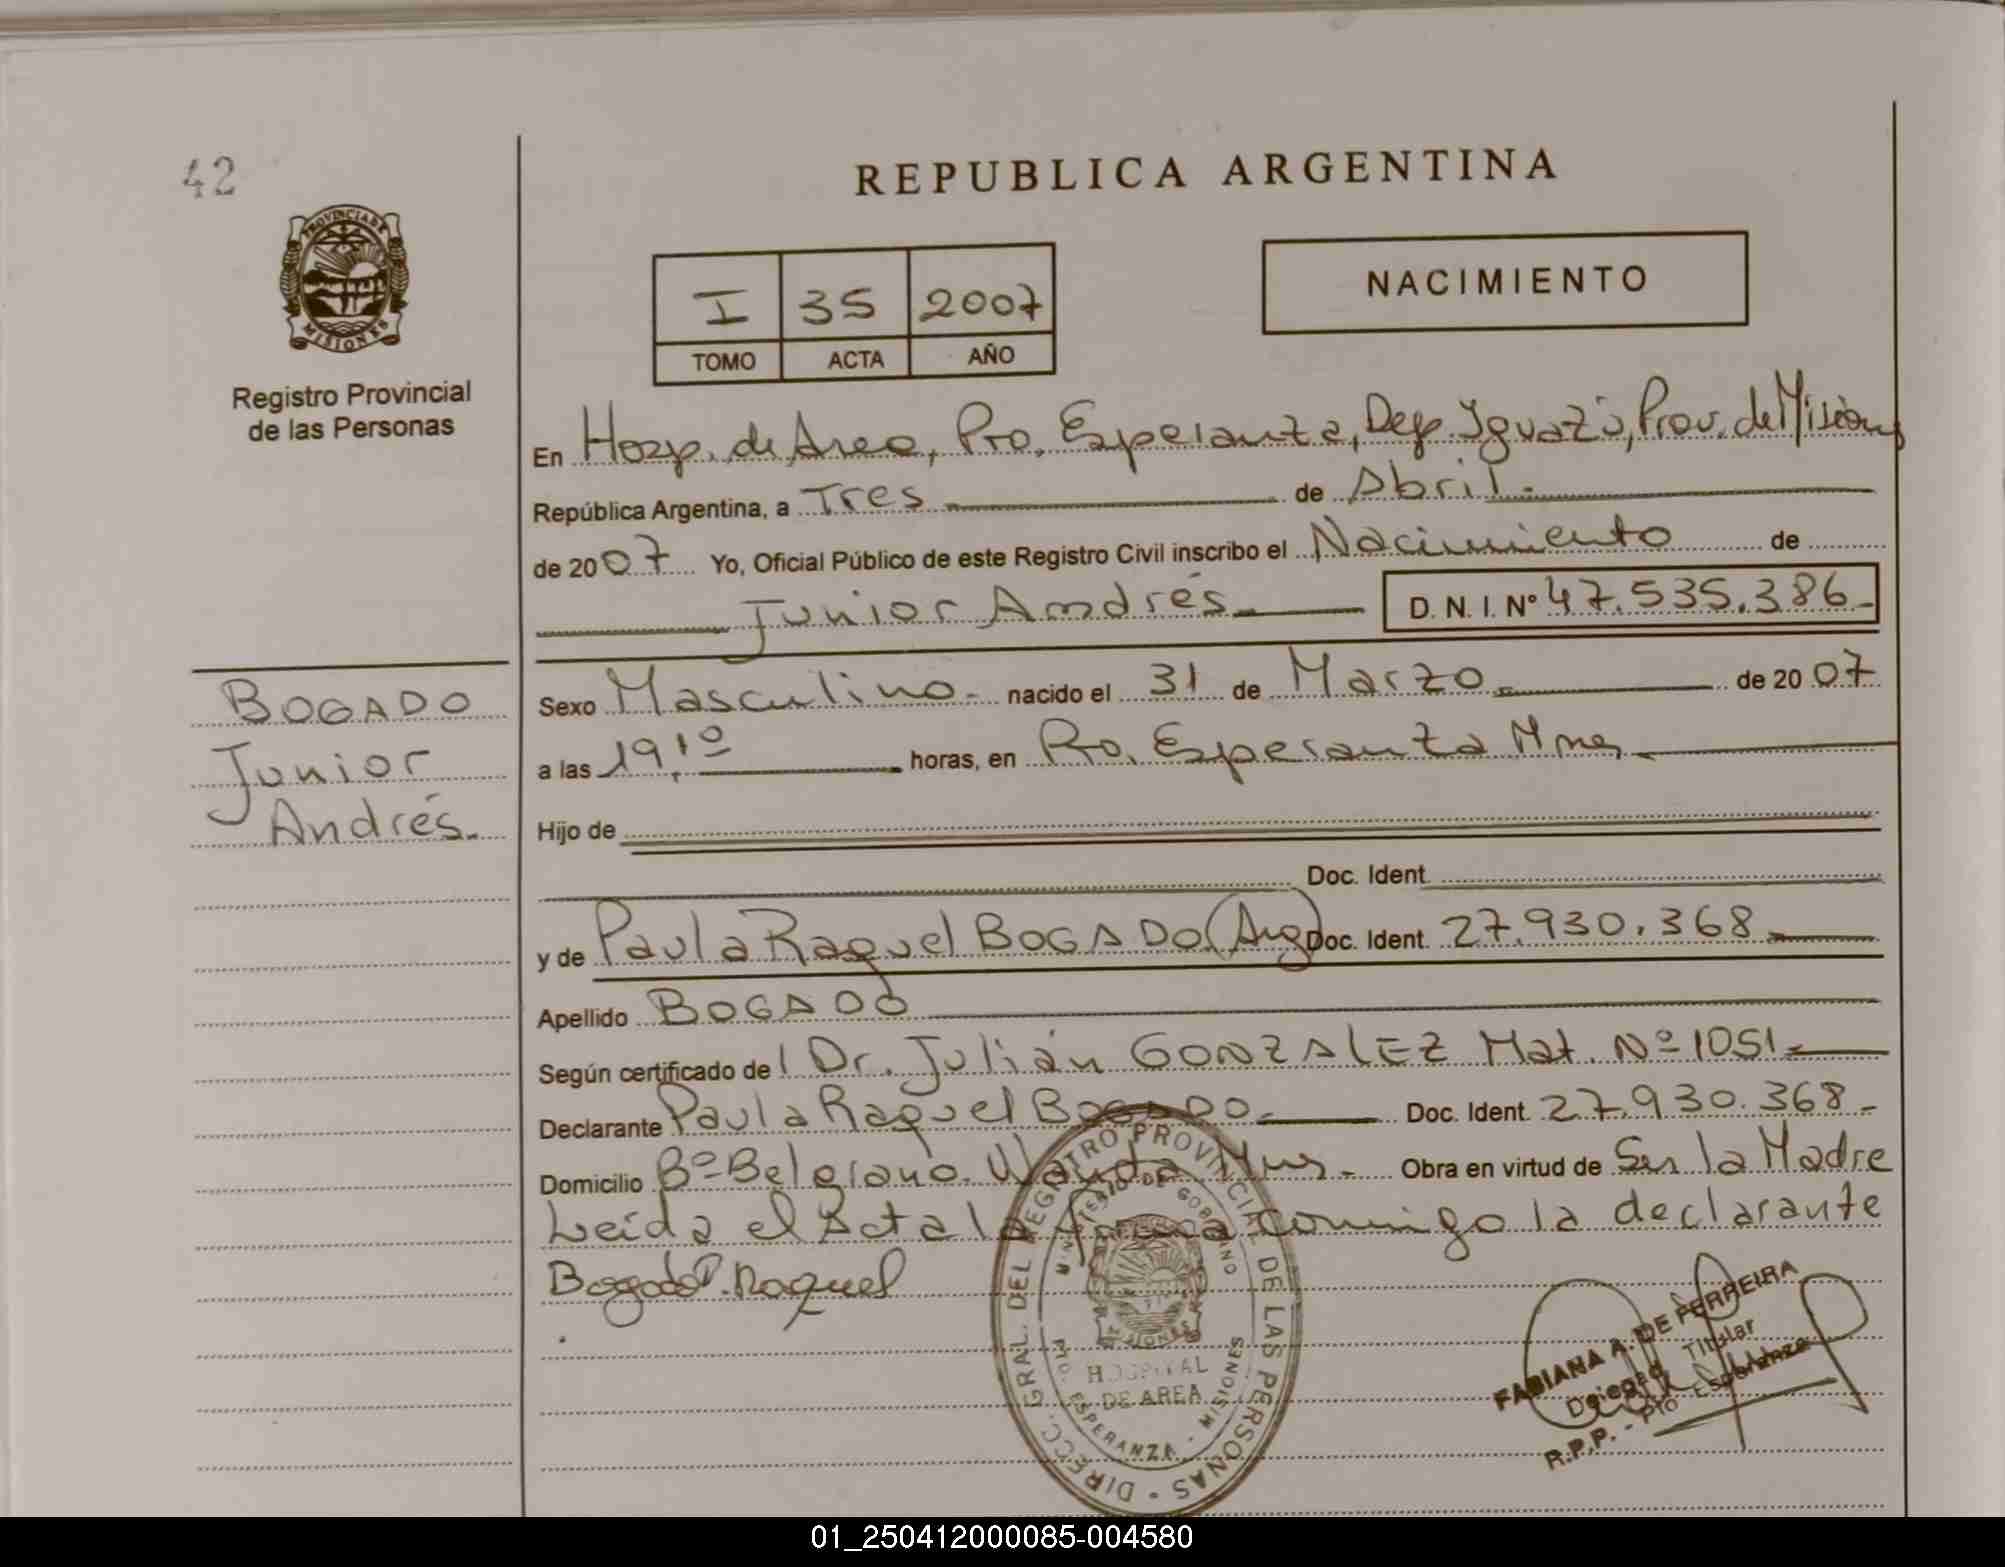 42
PROVINCIA DE
MISIONES
Registro Provincial
de las Personas
REPUBLICA ARGENTINA
I 35 2007
TOMO ACTA AÑO
NACIMIENTO
En Hosp. de Area, Pto. Esperanza, Dep. Iguazú, Prov. de Misiones
República Argentina, a Tres de Abril.
de 2007 Yo, Oficial Público de este Registro Civil inscribo el Nacimiento de
Junior Andrés D. N. I. Nº 47.535.386
BOGADO
Junior
Andrés.
Sexo Masculino nacido el 31 de Marzo de 2007
a las 19,10 horas, en Pto. Esperanza Mnes
Hijo de
Doc. Ident.
y de Paula Raquel BOGADO (Arg) Doc. Ident. 27.930.368
Apellido BOGADO
Según certificado del Dr. Julián GONZALEZ Mat. Nº 1051
Declarante Paula Raquel BOGADO Doc. Ident. 27.930.368
Domicilio Bº Belgrano. Wanda Mns. Obra en virtud de Ser la Madre
Leída el Acta la firma conmigo la declarante
Bogado P. Raquel
DIRECC. GRAL. DEL REGISTRO PROVINCIAL DE LAS PERSONAS
MINISTERIO DE GOBIERNO
MISIONES
HOSPITAL
DE AREA
PTO. ESPERANZA - MISIONES
FABIANA A. DE FERREIRA
Titular
R.P.P. - Pto Esperanza
01_250412000085-004580